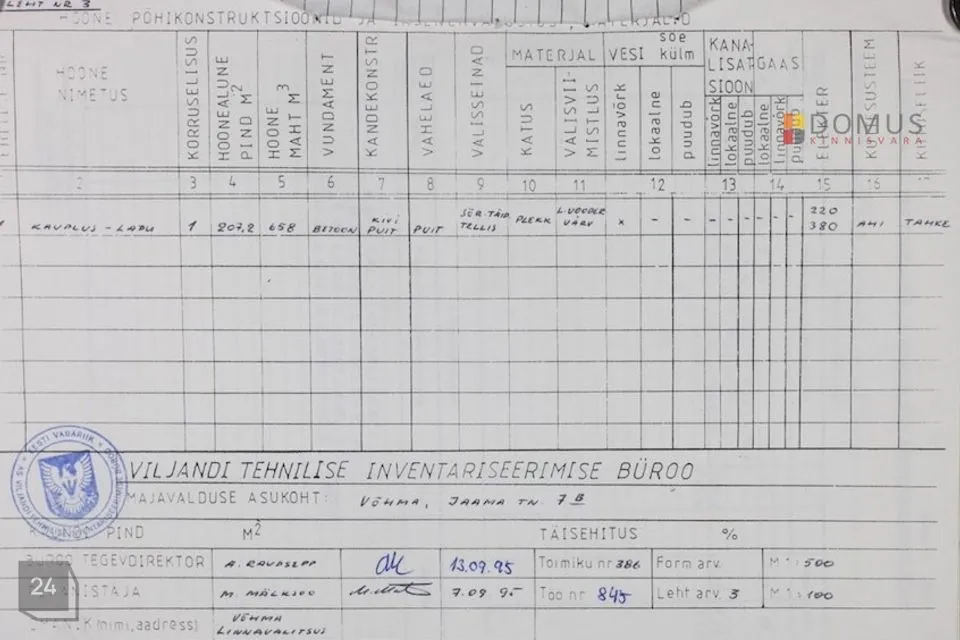 LEHT NR 3
HOONE PÕHIKONSTRUKTSIOONID JA
HOONE NIMETUS
KORRUSELISUS
HOONEALUNE PIND M²
HOONE MAHT M³
VUNDAMENT
KANDEKONSTR
VAHELAED
VÄLISSEINAD
MATERJAL
KATUS
VÄLISVII-
MISTLUS
VESI soe külm
linnavõrk
lokaalne
puudub
KANA-
LISAT-
SIOON
linnavõrk
lokaalne
puudub
GAAS
lokaalne
linnavõrk
DOMUS
KINNISVARA
2 3 4 5 6 7 8 9 10 11 12 13 14 15 16
KAUPLUS - LADU 1 207,2 658 BETOON KIVI PUIT PUIT SÜR. TÄID. TELLIS PLEKK L. VOODER VÄRV x - - - - - - - - 220 380 AHI TAHKE
EESTI VABARIIK
VILJANDI TEHNILISE INVENTARISEERIMISE BÜROO
MAJAVALDUSE ASUKOHT: VÕHMA, JAAMA TN. 7B
PIND M² TÄISEHITUS %
BÜROO TEGEVDIREKTOR A. RAUDSEPP 13.09.95 Toimiku nr 386 Form arv. M 1:500
M. MÄLKSOO 7.09.95 Töö nr 845 Leht arv. 3 M 1:100
(nimi, aadress) VÕHMA LINNAVALITSUS
24